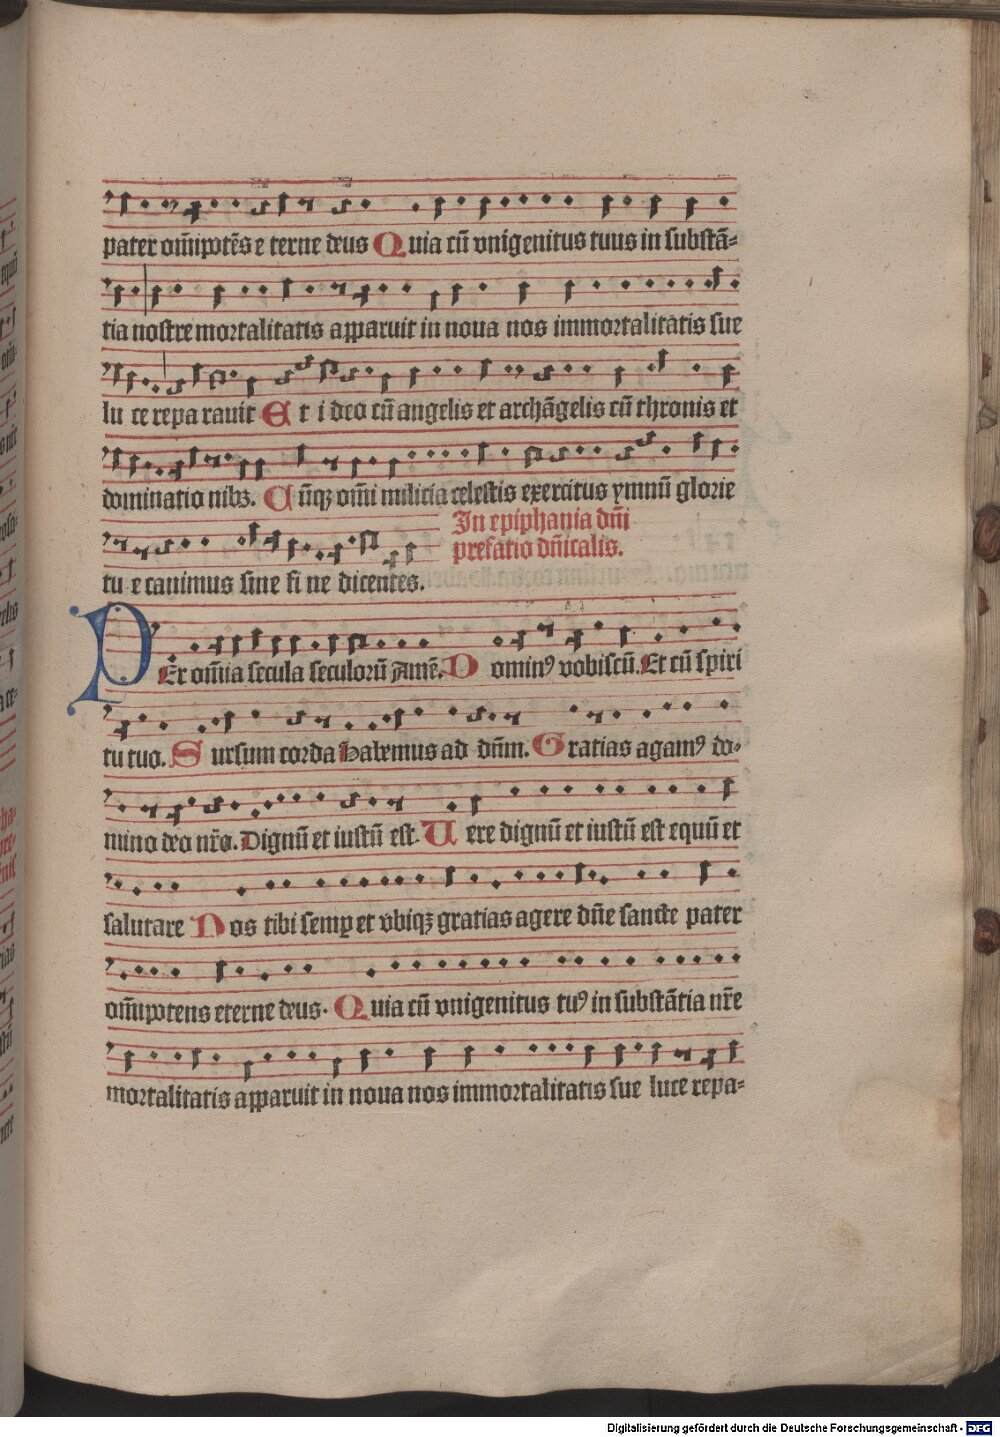 pater om̄ipotēs e terne deus Quia cū vnigenitus tuus in substā-
tia nostre mortalitatis apparuit in noua nos immortalitatis sue
lu ce repa rauit Et i deo cū angelis et archāgelis cū thronis et
dominatio nibꝫ. Cūqꝫ om̄i milicia celestis exercitus ymnū glorie
In epiphania dn̄i
prefatio dn̄icalis.
tu e canimus sine fi ne dicentes.
PEr om̄ia secula seculorū Amē. Dominꝰ vobiscū. Et cū spiri
tu tuo. Sursum corda Habemus ad dn̄m. Gratias agamꝰ do-
mino deo nr̄o. Dignū et iustū est. Uere dignū et iustū est equū et
salutare Nos tibi semꝑ et vbiqꝫ gratias agere dn̄e sancte pater
om̄ipotens eterne deus. Quia cū vnigenitus tuꝰ in substātia nr̄e
mortalitatis apparuit in noua nos immortalitatis sue luce repa-
Digitalisierung gefördert durch die Deutsche Forschungsgemeinschaft - DFG